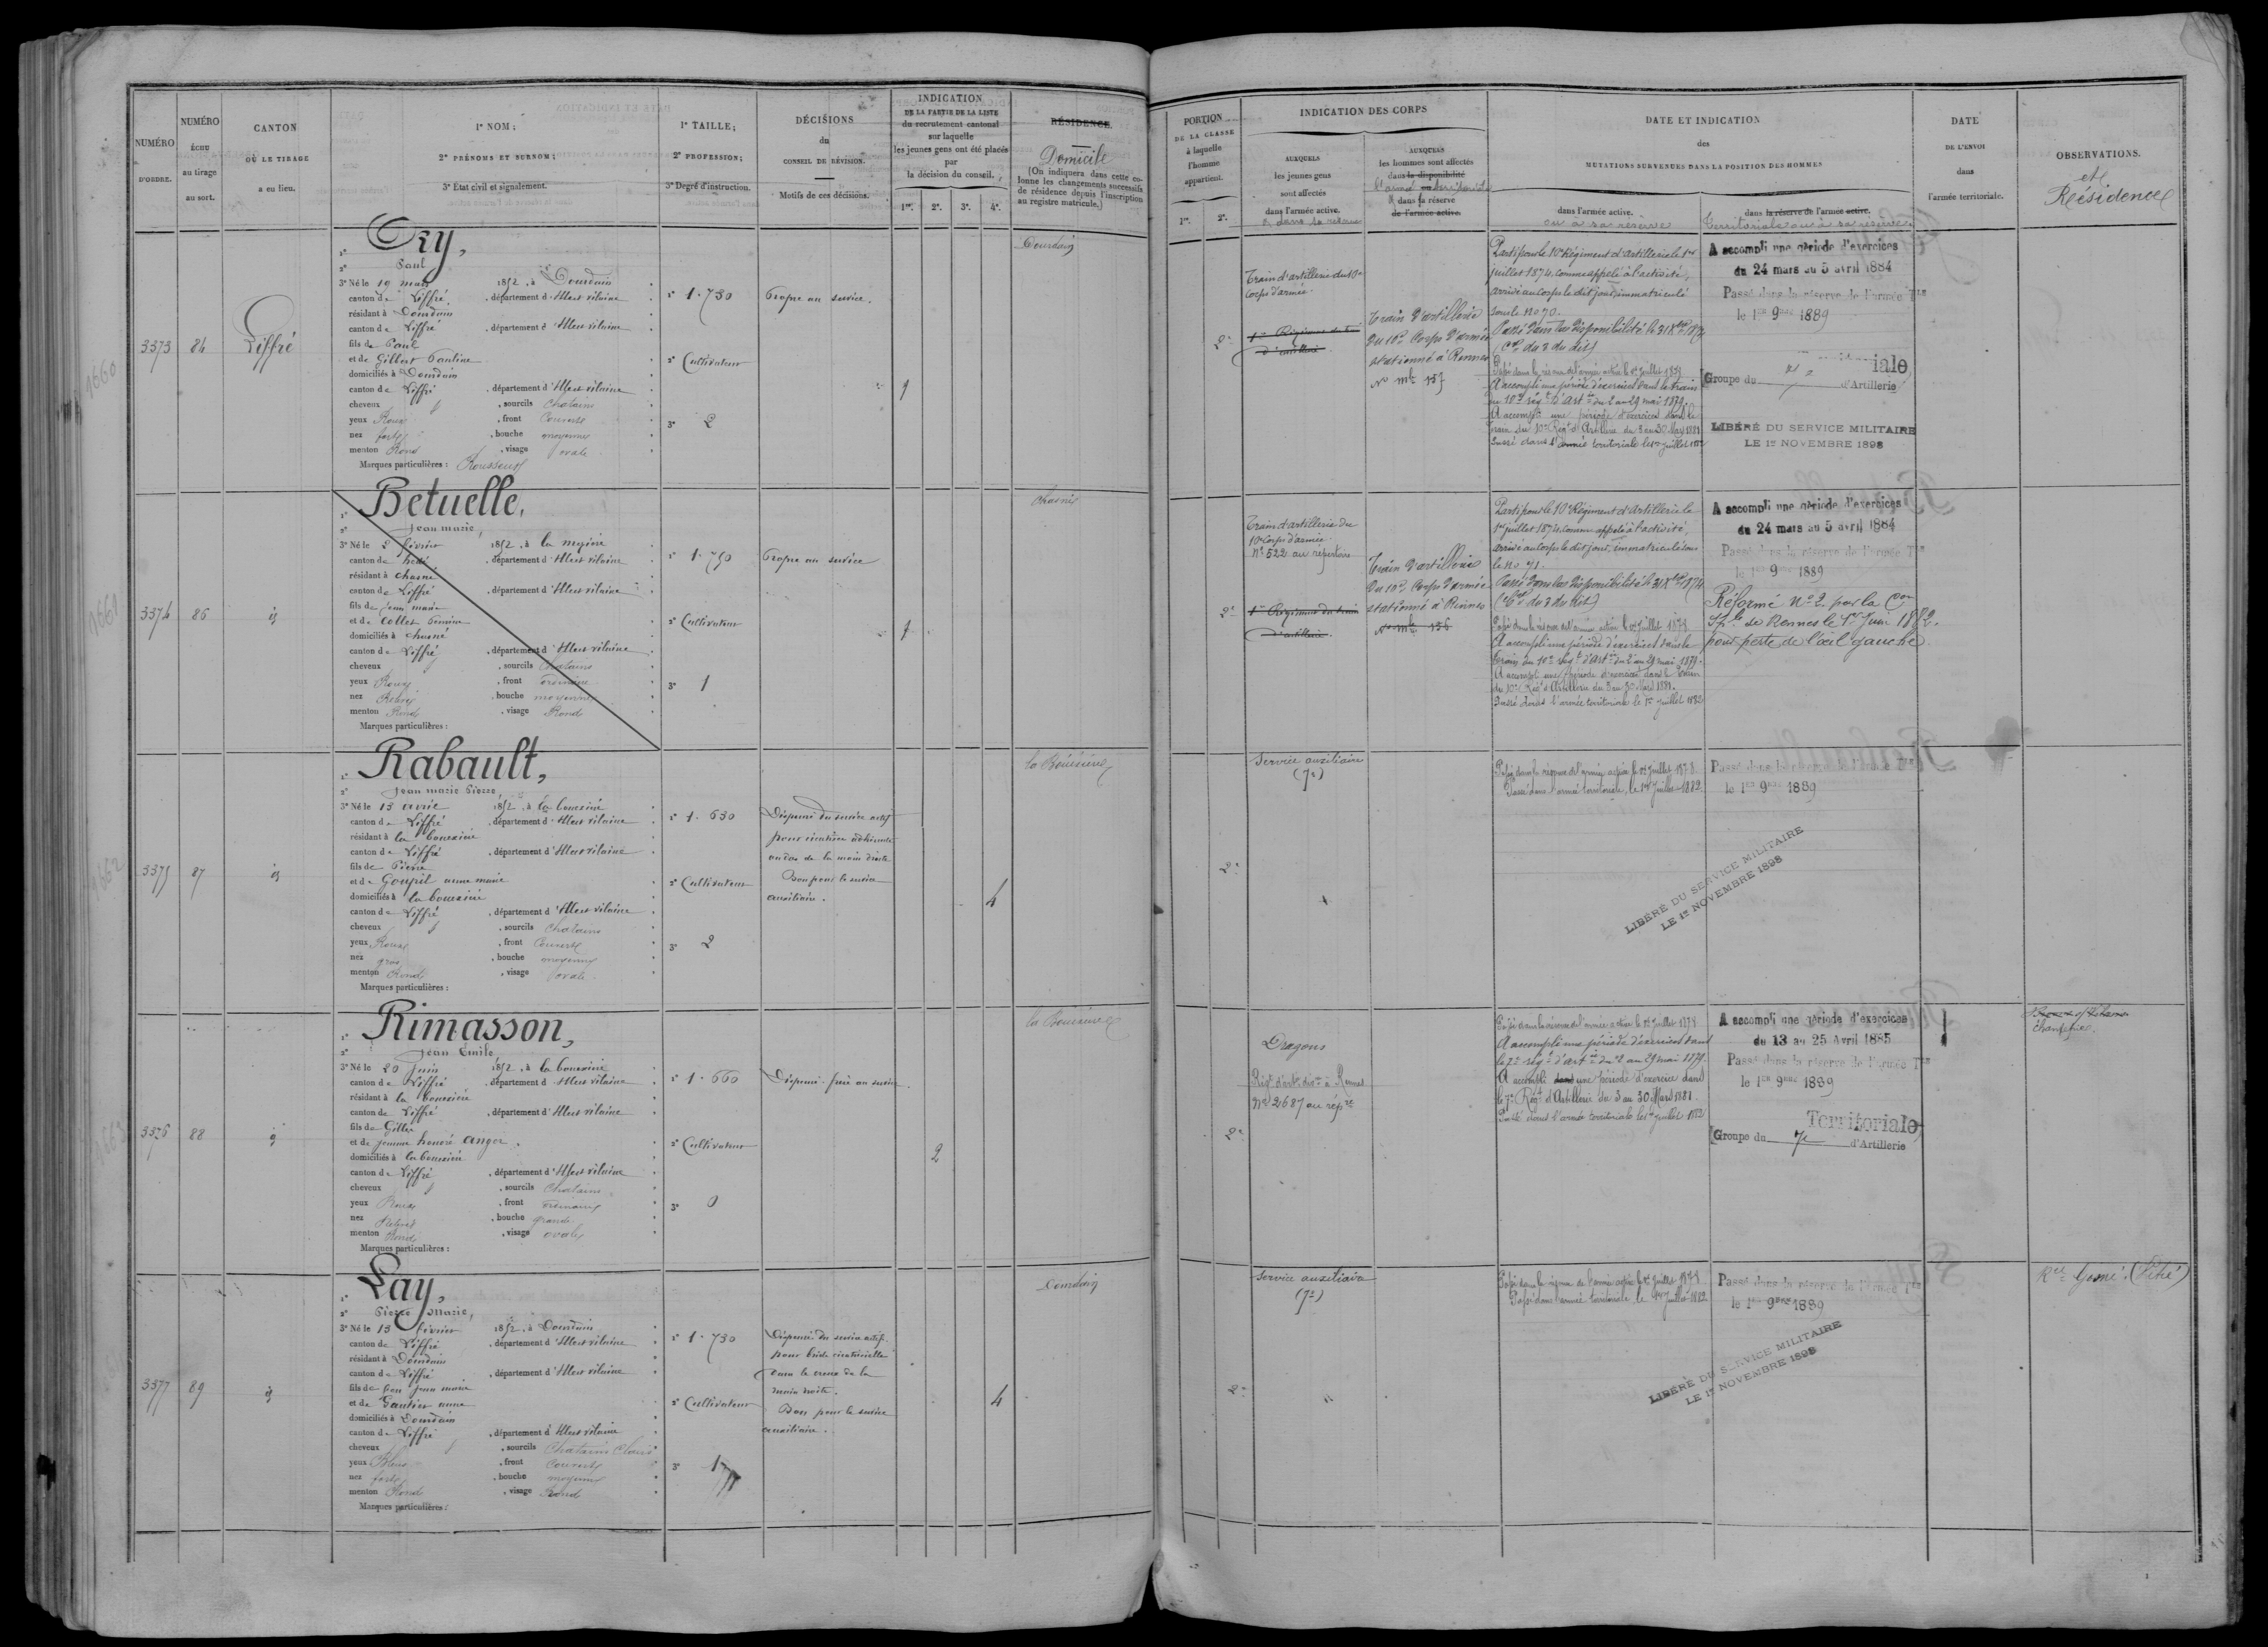 NUMÉRO D'ORDRE.
NUMÉRO ÉCHU au tirage au sort.
CANTON OÙ LE TIRAGE a eu lieu.
1º NOM;
2º PRÉNOMS ET SURNOM;
3º État civil et signalement.
1º TAILLE;
2º PROFESSION;
3º Degré d'instruction.
DÉCISIONS du CONSEIL DE RÉVISION.
Motifs de ces décisions.
INDICATION
DE LA PARTIE DE LA LISTE
du recrutement cantonal
sur laquelle
les jeunes gens ont été placés
par
la décision du conseil.
1re. 2e. 3e. 4e.
RÉSIDENCE.
Domicile
(On indiquera dans cette colonne les changements successifs de résidence depuis l'inscription au registre matricule.)
3373
84
Liffré
Ory,
Paul
3º Né le 19 mars 1852, à Dourdain
canton de Liffré, département d'Ille et vilaine
résidant à Dourdain
canton de Liffré, département d'Ille et vilaine
fils de Paul
et de Gillot Pauline
domiciliés à Dourdain
canton de Liffré, département d'Ille et vilaine
cheveux, sourcils Chatains
yeux Roux, front Couvert
nez fort, bouche moyenne
menton Rond, visage ovale
Marques particulières : Rousseurs
1º 1.730
2º Cultivateur
3º 2
Propre au service.
1
Dourdain
3374
86
id
Betuelle,
Jean marie,
3º Né le 2 février 1852, à la mezière
canton de hédé, département d'Ille et vilaine
résidant à chasné
canton de Liffré, département d'Ille et vilaine
fils de jean marie
et de Collet
domiciliés à chasné
canton de Liffré, département d'Ille et vilaine
cheveux, sourcils Chatains
yeux Roux, front ordinaire
nez Relevé, bouche moyenne
menton Rond, visage Rond
Marques particulières :
1º 1.750
2º Cultivateur
3º 1
Propre au service
1
Chasné
3375
87
id
Rabault,
Jean marie Pierre
3º Né le 13 avril 1852, à la bouexière
canton de Liffré, département d'Ille et vilaine
résidant à la bouexière
canton de Liffré, département d'Ille et vilaine
fils de Pierre
et de Goupil anne marie
domiciliés à la bouexière
canton de Liffré, département d'Ille et vilaine
cheveux, sourcils Chatains
yeux Roux, front Couvert
nez gros, bouche moyenne
menton Rond, visage ovale
Marques particulières :
1º 1.630
2º Cultivateur
3º 2
Dispensé du service actif
pour cicatrice adhérente
au dos de la main droite
Bon pour le service
auxiliaire.
4
la Bouëxière
3376
88
id
Rimasson,
Jean Emile
3º Né le 20 juin 1852, à la bouexière
canton de Liffré, département d'Ille et vilaine
résidant à la bouexière
canton de Liffré, département d'Ille et vilaine
fils de Gilles
et de jeanne honoré anger
domiciliés à la bouexière
canton de Liffré, département d'Ille et vilaine
cheveux, sourcils Chatains
yeux Roux, front ordinaire
nez Relevé, bouche grande
menton Rond, visage ovale
Marques particulières :
1º 1.660
2º Cultivateur
3º 0
Dispensé. frère au service.
2
la Bouëxière
3377
89
id
Lay,
Pierre Marie,
3º Né le 13 février 1852, à Dourdain
canton de Liffré, département d'Ille et vilaine
résidant à Dourdain
canton de Liffré, département d'Ille et vilaine
fils de feu jean marie
et de Gautier anne
domiciliés à Dourdain
canton de Liffré, département d'Ille et vilaine
cheveux, sourcils Chatains Clairs
yeux Bleus, front couvert
nez fort, bouche moyenne
menton Rond, visage Rond
Marques particulières :
1º 1.730
2º Cultivateur
3º 1
Dispensé du service actif
pour bride cicatricielle
dans le creux de la
main droite.
Bon pour le service
auxiliaire.
4
Dourdain
PORTION
DE LA CLASSE
à laquelle
l'homme
appartient.
1re. 2e.
INDICATION DES CORPS
AUXQUELS
les jeunes gens
sont affectés
dans l'armée active.
& dans sa réserve
AUXQUELS
les hommes sont affectés
dans la disponibilité
l'armée territoriale
& dans sa réserve
de l'armée active.
DATE ET INDICATION
des
MUTATIONS SURVENUES DANS LA POSITION DES HOMMES
dans l'armée active.
ou à sa réserve
dans la réserve de l'armée active.
Territoriale ou à sa réserve.
DATE
DE L'ENVOI
dans
l'armée territoriale.
OBSERVATIONS.
et
Résidence
2e
Train d'artillerie du 10e
Corps d'armée.
1er Régiment du train
d'artillerie.
Train d'artillerie
du 10e Corps d'armée
stationné à Rennes
Nº mle 157
Parti pour le 10e Régiment d'artillerie le 1er
juillet 1874. Comme appelé à l'activité,
arrivé au Corps le dit jour, immatriculé
sous le nº 70.
Passé dans la disponibilité le 31 Xbre 1874
du 3 du dit)
Passé dans la réserve de l'armée active le 1er juillet 1878
A accompli une période d'exercices dans le train
du 10e régt d'Artie du 2 au 29 mai 1879.
A accompli une période d'exercices dans le
train du 10e Régt d'Artillerie du 3 au 30 Mars 1881
Passé dans l'armée territoriale le 1er juillet 1882
A accompli une période d'exercices
du 24 mars au 5 avril 1884
Passé dans la réserve de l'armée Tle
le 1er 9bre 1889
iale
Groupe du d'Artillerie
LIBÉRÉ DU SERVICE MILITAIRE
LE 1er NOVEMBRE 1898
2e
Train d'artillerie du
10e Corps d'armée
Nº 522 au répertoire
1er Régiment du train
d'artillerie.
Train d'artillerie
du 10e Corps d'armée
stationné à Rennes
Nº mle 156
Parti pour le 10e Régiment d'artillerie le
1er juillet 1874. Comme appelé à l'activité,
arrivé au Corps le dit jour, immatriculé sous
le nº 71.
Passé dans la disponibilité le 31 Xbre 1874
du 3 du dit)
Passé dans la réserve de l'armée active le 1er juillet 1878
A accompli une période d'exercices dans le
train du 10e régt d'Artie du 2 au 29 mai 1879.
A accompli une période d'exercices dans le train
du 10e Régt d'Artillerie du 3 au 30 Mars 1881.
Passé dans l'armée territoriale le 1er juillet 1882
A accompli une période d'exercices
du 24 mars au 5 avril 1884
Passé dans la réserve de l'armée Tle
le 1er 9bre 1889
Réformé Nº 2. par la Con
Sple de Rennes le 1er Juin 1882.
pour perte de l'oeil gauche.
2e
Service auxiliaire
(7e)
Passé dans la réserve de l'armée active le 1er juillet 1878.
Passé dans l'armée territoriale, le 1er Juillet 1882
Passé dans la réserve de l'armée Tle
le 1er 9bre 1889
LIBÉRÉ DU SERVICE MILITAIRE
LE 1er NOVEMBRE 1898
2e
Dragons
Régt d'artie à Rennes
Nº 2687 au répre
Passé dans la réserve de l'armée active le 1er juillet 1878
A accompli une période d'exercices dans
le 7e régt d'artie du 2 au 29 mai 1879.
A accompli dans une période d'exercice dans
le 7e Régt d'Artillerie du 3 au 30 Mars 1881.
Passé dans l'armée territoriale le 1er juillet 1882
A accompli une période d'exercices
du 13 au 25 Avril 1885
Passé dans la réserve de l'armée Tle
le 1er 9bre 1889
Territoriale
Groupe du 7e d'Artillerie
2e
Service auxiliaire
(7e)
"
Passé dans la réserve de l'armée active le 1er juillet 1878
Passé dans l'armée territoriale le 1er Juillet 1882
Passé dans la réserve de l'armée Tle
le 1er 9bre 1889
LIBÉRÉ DU SERVICE MILITAIRE
LE 1er NOVEMBRE 1898
1660
1661
1662
1663